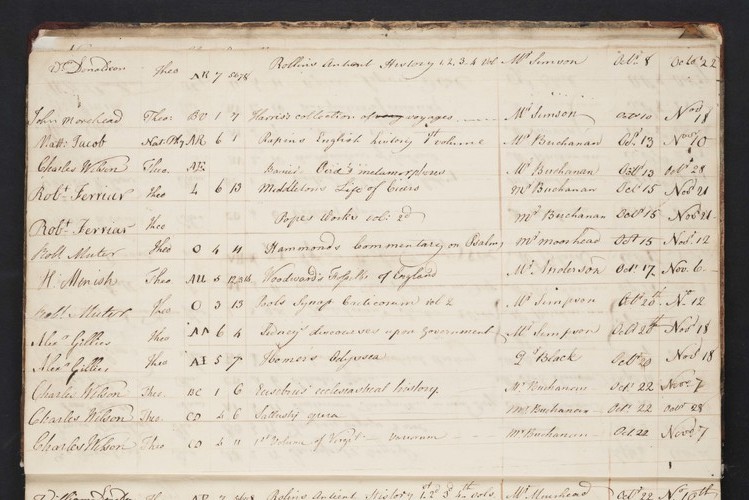 Dr Donaldson Theo AR 7 5678 Rollins Antient History 1, 2, 3-4 vol Mr Simson Octr 8 Octor 22
John Morehead Theo: BC 1 7 Harris's collection of voyages Mr Simson Octr 10 Novr 18
Matt: Jacob Nat: Phy AR 6 1 Rapins English history 1st volume Mr Buchanan Octr 13 Novr 10
Charles Wilson Theo. AE Ovid's metamorphoses Mr Buchanan Octr 13 Octr 28
Robt Ferriar Theo 4 6 13 Middletons Life of Cicero Mr Buchanan Octr 15 Novr 21
Robt Ferriar Theo Popes Works vol: 2d Mr Buchanan Octr 15 Novr 21
Robt Muter Theo O 4 4 Hammonds Commentary on Psalms Mr Moorhead Octr 15 Novr 12
H. Menish Theo AU 5 Woodward's Fossils of England Mr Anderson Octr 17. Nov. 6
Robt Muter Theo O 3 13 Pools Synops Criticorum vol 2 Mr Simpson Octr 20th Nr 12
Alexr Gillies Theo AA 6 4 Sidney's discourses upon Government Mr Simpson Octr 20th Novr 18
Alexr Gillies Theo AE 5 7 Homers Odyssea Dr Black Octr 20 Novr 18
Charles Wilson Theo. BC 1 6 Eusebius' ecclesiastical history Mr Buchanan Octr 22 Novr 7
Charles Wilson Theo. CD 4 6 Sallustii opera Mr Buchanan Octr 22 Octr 28
Charles Wilson Theo CD 4 11 1st Volume of Virgil Variorum Mr Buchanan Oct 22 Novr 7
William Theo AR 7 Rolins Antient History 1st 2d 3d 4th vols Mr Muirhead Octr 22 Nr 10th